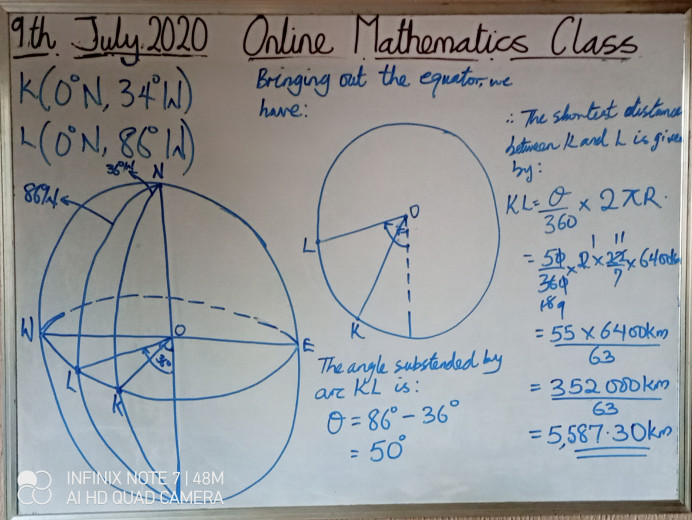 9.th July.2020 Online Mathematics Class
K(0°N, 34°W)
L(0°N, 86°W)
36°W
N
86°W
W
O
E
L
36°
K
Bringing out the equator, we
have:
O
L
K
The angle substended by
arc KL is:
θ = 86° - 36°
= 50°
∴ The shortest distance
between K and L is given
by:
KL = θ/360 × 2πR.
= 50/360 × 2 × 22/7 × 6400km
1 11
18 9
= 55 × 6400km
63
= 352000km
63
= 5,587.30km
INFINIX NOTE 7 | 48M
AI HD QUAD CAMERA